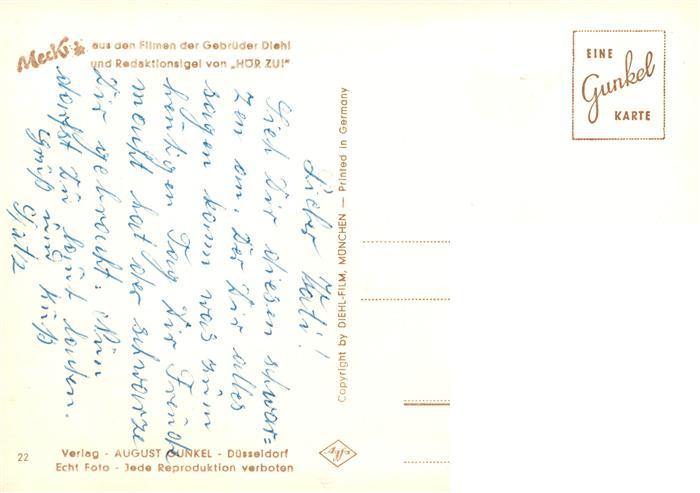 Mecki aus den Filmen der Gebrüder Diehl
und Redaktionsigel von „HÖR ZU!"
EINE
Gunkel
KARTE
Lieber Kati!
Sieh Dir diesen schwar=
zen an, der Dir alles
sagen kann was zum
heutigen Tag Dir Freude
macht hat der schwarze
Dir gebracht. Nun
darfst Du laut lachen.
Gruß und Kuß
Copyright by DIEHL-FILM, MÜNCHEN — Printed in Germany
22
Verlag - AUGUST GUNKEL - Düsseldorf
Echt Foto - Jede Reproduktion verboten
Agfa